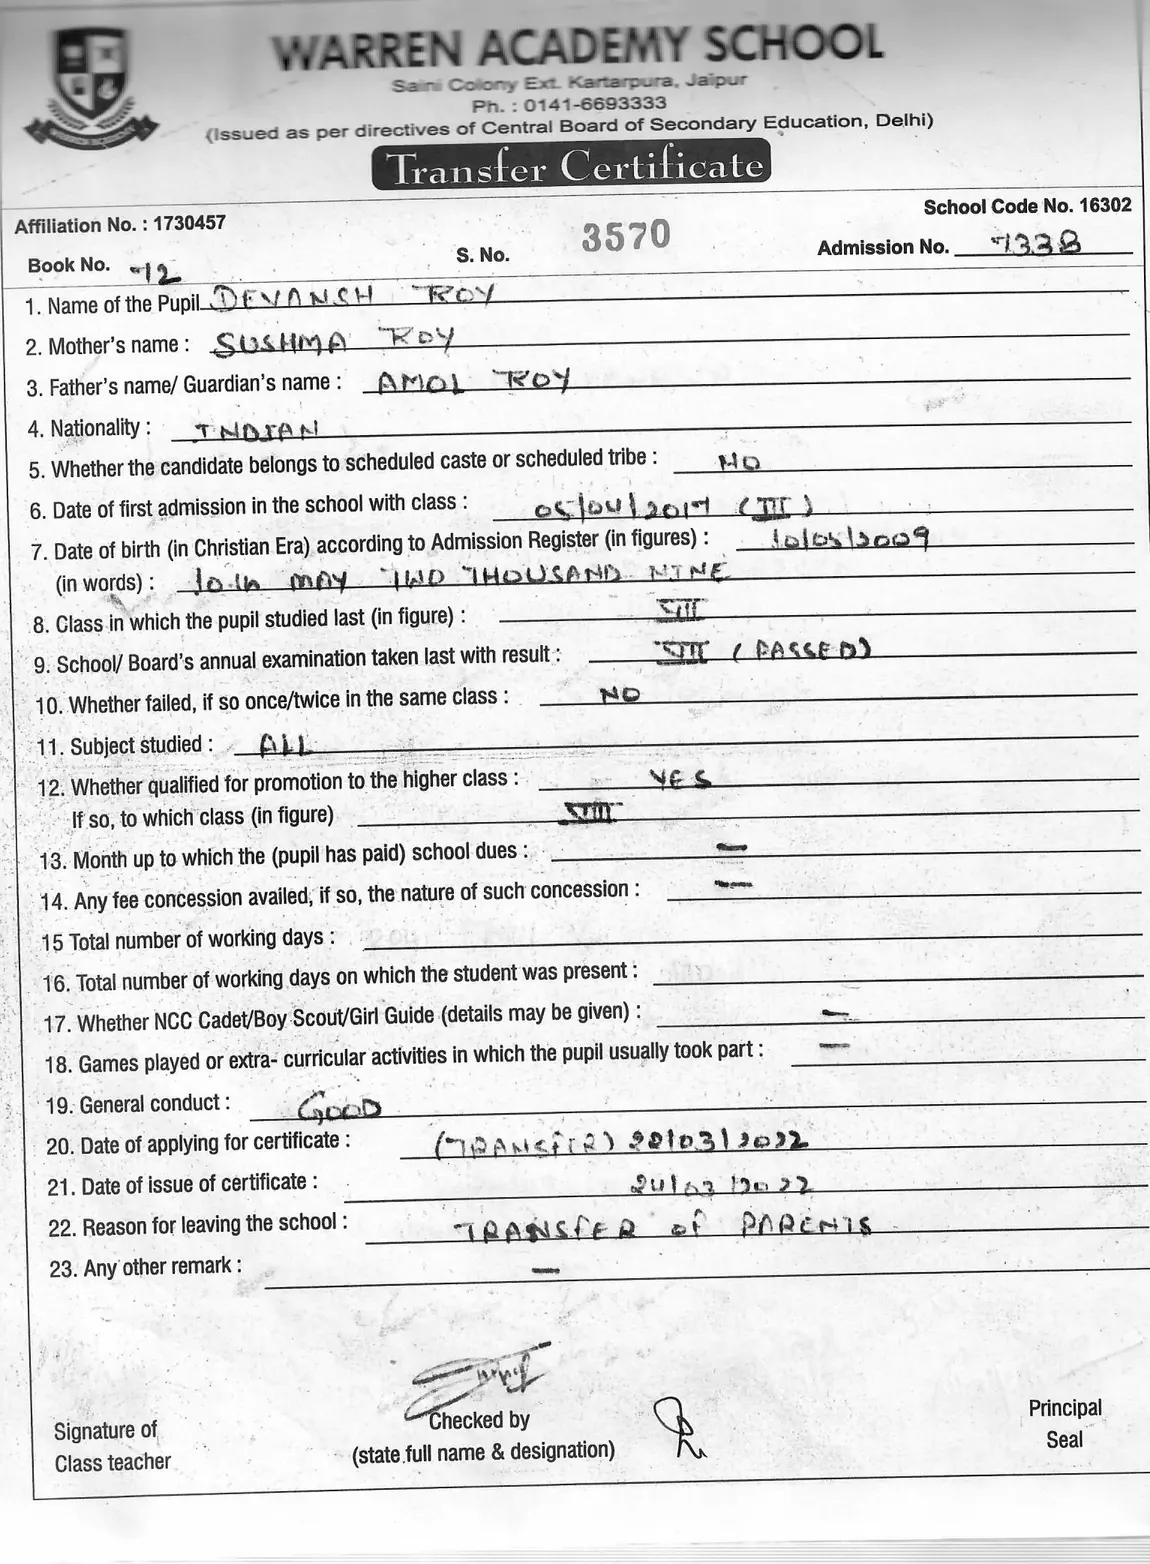 WARREN ACADEMY SCHOOL
Saini Colony Ext. Kartarpura, Jaipur
Ph. : 0141-6693333
(Issued as per directives of Central Board of Secondary Education, Delhi)
Transfer Certificate
Affiliation No. : 1730457 School Code No. 16302
Book No. 72 S. No. 3570 Admission No. 7338
1. Name of the Pupil DEVANSH ROY
2. Mother's name : SUSHMA ROY
3. Father's name/ Guardian's name : AMOL ROY
4. Nationality : INDIAN
5. Whether the candidate belongs to scheduled caste or scheduled tribe : NO
6. Date of first admission in the school with class : 05/04/2017 (III)
7. Date of birth (in Christian Era) according to Admission Register (in figures) : 10/05/2009
(in words) : 10th MAY TWO THOUSAND NINE
8. Class in which the pupil studied last (in figure) : VII
9. School/ Board's annual examination taken last with result : VII (PASSED)
10. Whether failed, if so once/twice in the same class : NO
11. Subject studied : ALL
12. Whether qualified for promotion to the higher class : YES
If so, to which class (in figure) VIII
13. Month up to which the (pupil has paid) school dues : —
14. Any fee concession availed, if so, the nature of such concession : —
15 Total number of working days :
16. Total number of working days on which the student was present :
17. Whether NCC Cadet/Boy Scout/Girl Guide (details may be given) : —
18. Games played or extra- curricular activities in which the pupil usually took part : —
19. General conduct : GOOD
20. Date of applying for certificate : (TRANSFER) 22/03/2022
21. Date of issue of certificate : 24/03/2022
22. Reason for leaving the school : TRANSFER OF PARENTS
23. Any other remark : —
Signature of Checked by Principal
Class teacher (state full name & designation) Seal